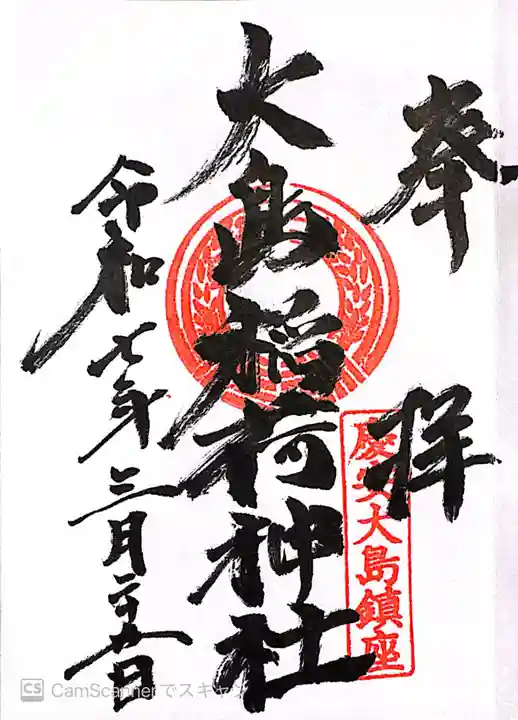 奉拝
慶安大島鎮座
大島稲荷神社
令和七年三月二十九日
CS CamScannerでスキャン